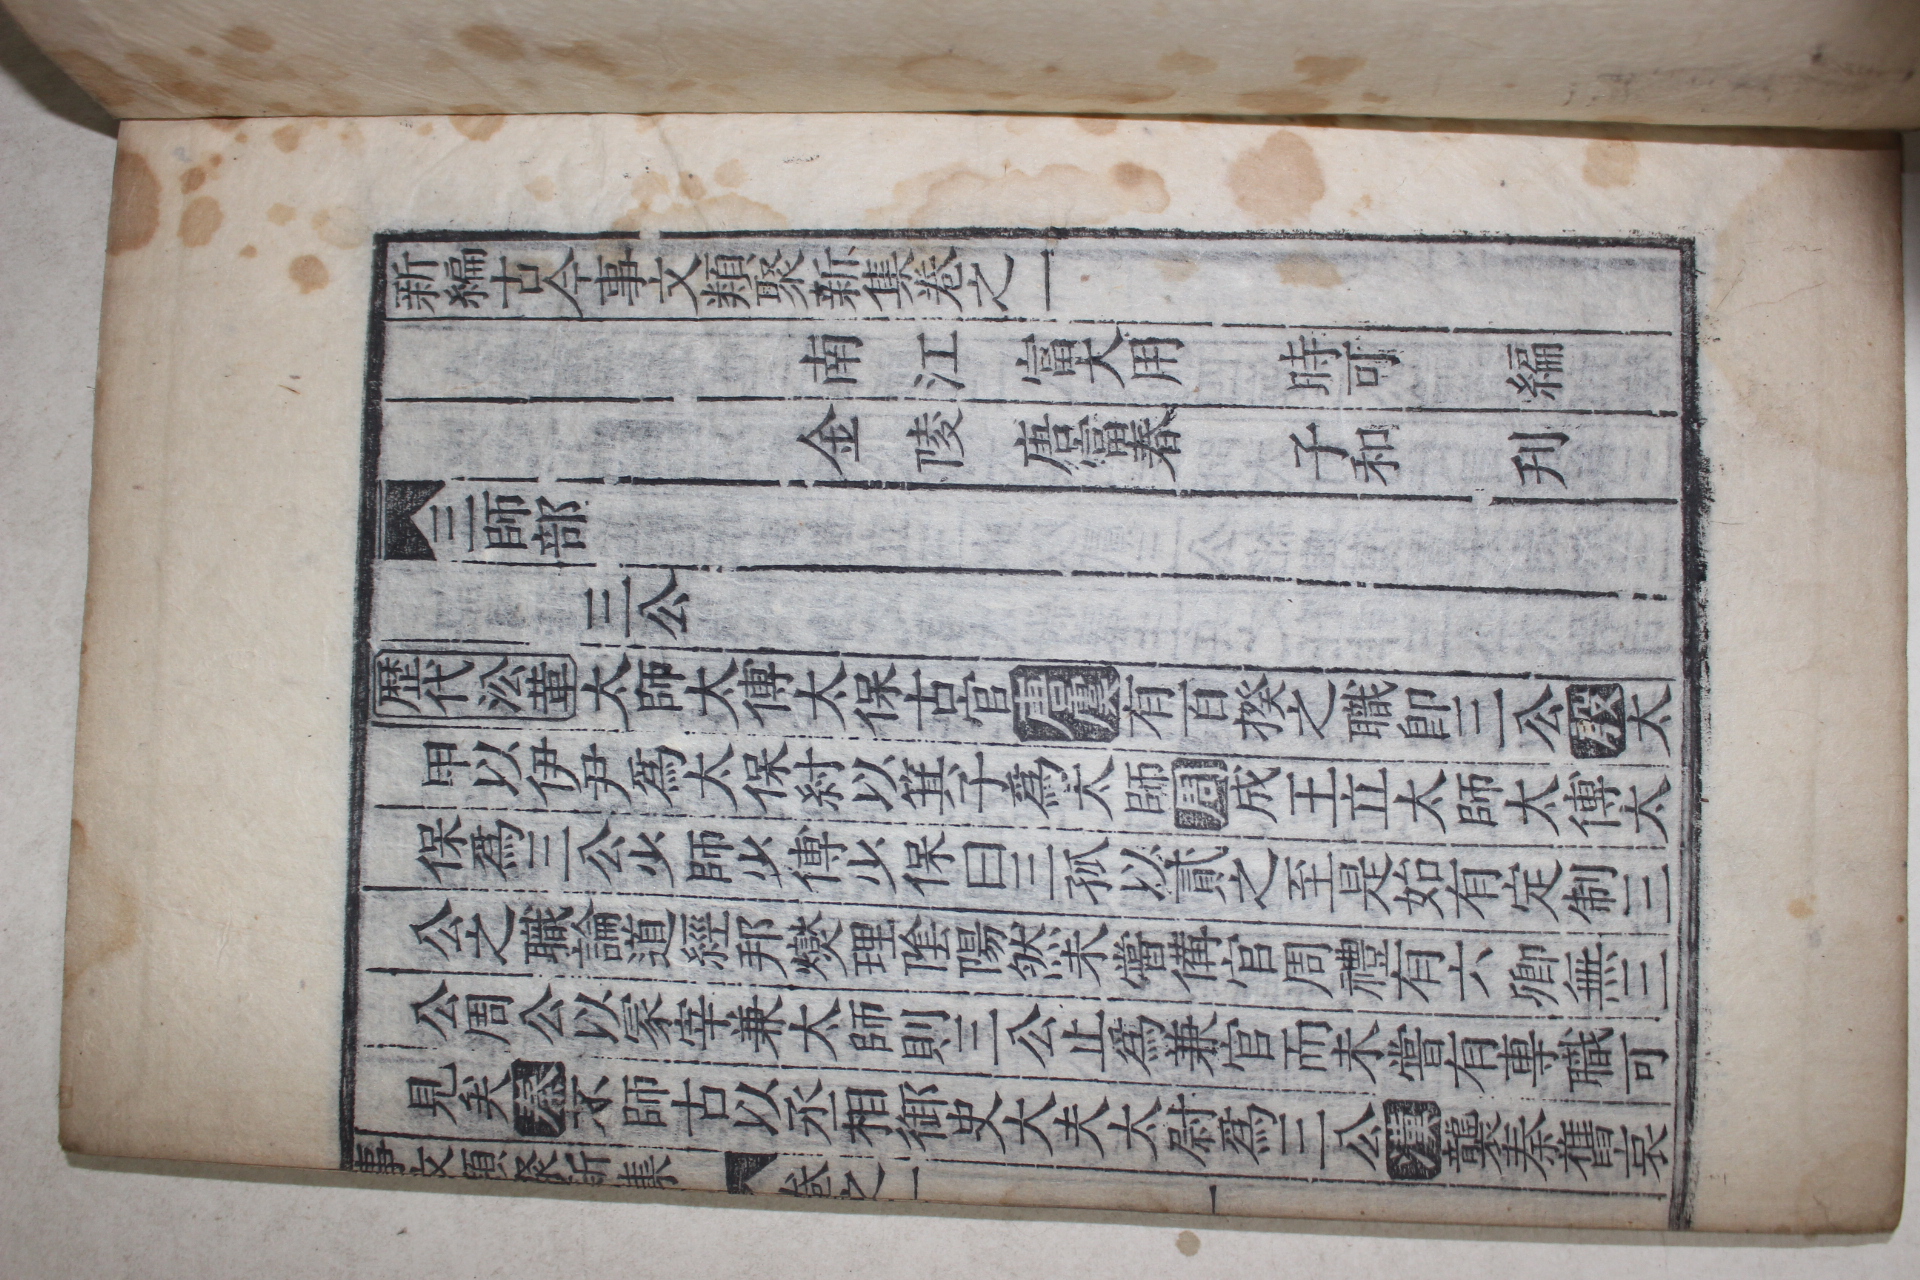 新編古今事文類聚新集卷之一
南江富大用時可編
金陵唐富春子和刊
三師部
三公
歷代沿革太師太傅太保古官唐虞有百揆之職卽三公殷太
甲以伊尹爲太保紂以箕子爲太師周成王立太師太傅太
保爲三公少師少傅少保曰三孤以貳之至是始有定制三
公之職論道經邦燮理陰陽然未嘗備官周禮有六卿無三
公周公以冢宰兼太師則三公止爲兼官而未嘗有專職可
見矣秦不師古以丞相御史大夫太尉爲三公漢襲秦舊哀
事文類聚新集 卷之一 一